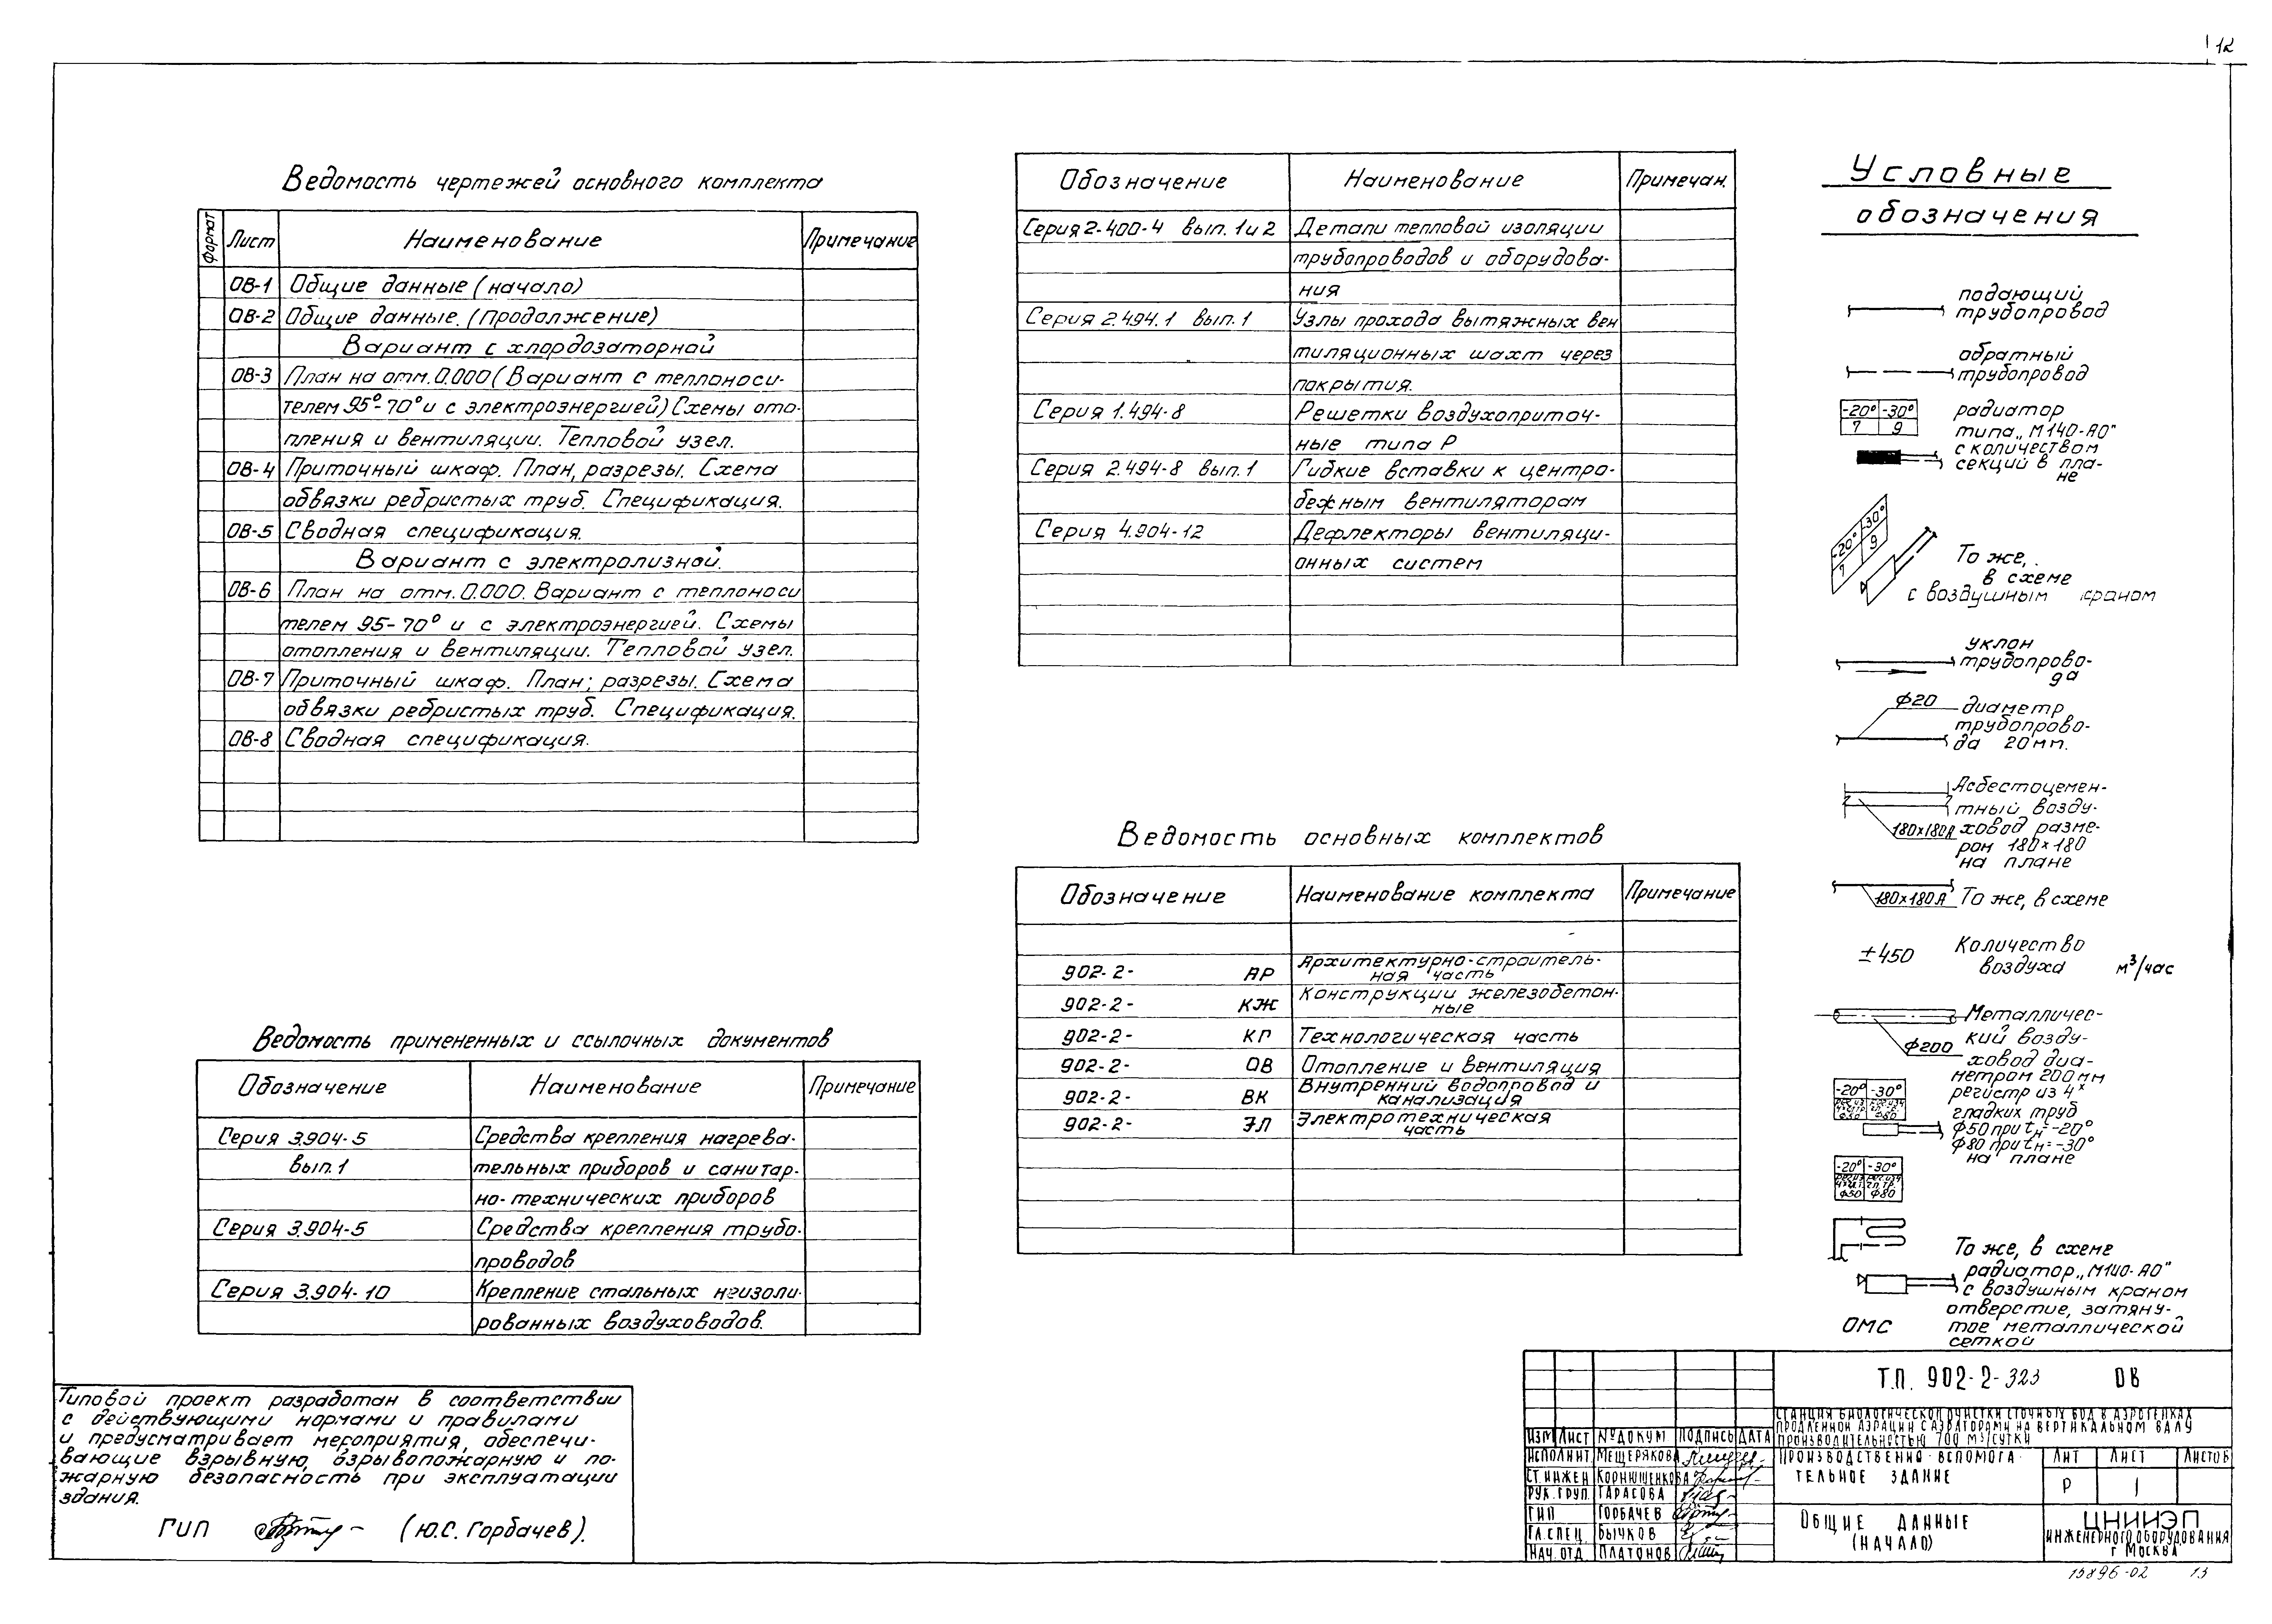 12
Ведомость чертежей основного комплекта
Формат Лист Наименование Примечание
ОВ-1 Общие данные (начало)
ОВ-2 Общие данные. (продолжение)
Вариант с хлордозаторной
ОВ-3 План на отм. 0.000 (Вариант с теплоноси-
телем 95°-70° и с электроэнергией) Схемы ото-
пления и вентиляции. Тепловой узел.
ОВ-4 Приточный шкаф. План, разрезы. Схема
обвязки ребристых труб. Спецификация.
ОВ-5 Сводная спецификация.
Вариант с электролизной.
ОВ-6 План на отм. 0.000. Вариант с теплоноси
телем 95-70° и с электроэнергией. Схемы
отопления и вентиляции. Тепловой узел.
ОВ-7 Приточный шкаф. План; разрезы. Схема
обвязки ребристых труб. Спецификация.
ОВ-8 Сводная спецификация.
Ведомость примененных и ссылочных документов
Обозначение Наименование Примечание
Серия 3.904-5 Средства крепления нагрева-
вып.1 тельных приборов и санитар-
но-технических приборов
Серия 3.904-5 Средства крепления трубо-
проводов
Серия 3.904-10 Крепление стальных неизоли-
рованных воздуховодов.
Типовой проект разработан в соответствии
с действующими нормами и правилами
и предусматривает мероприятия, обеспечи-
вающие взрывную, взрывопожарную и по-
жарную безопасность при эксплуатации
здания.
ГИП (Ю.С. Горбачев).
Обозначение Наименование Примечан.
Серия 2-400-4 вып. 1 и 2 Детали тепловой изоляции
трубопроводов и оборудова-
ния
Серия 2.494.1 вып. 1 Узлы прохода вытяжных вен
тиляционных шахт через
покрытия.
Серия 1.494-8 Решетки воздухоприточ-
ные типа Р
Серия 2.494-8 вып.1 Гибкие вставки к центро-
бежным вентиляторам
Серия 4.904-12 Дефлекторы вентиляци-
онных систем
Ведомость основных комплектов
Обозначение Наименование комплекта Примечание
902-2- АР Архитектурно-строитель-
ная часть
902-2- КЖ Конструкции железобетон-
ные
902-2- КГ Технологическая часть
902-2- ОВ Отопление и вентиляция
902-2- ВК Внутренний водопровод и
канализация
902-2- ЭЛ Электротехническая
часть
Условные
обозначения
подающий
трубопровод
обратный
трубопровод
-20° -30° радиатор
7 9 типа „М140-АО"
с количеством
секций в пла-
не
-20° -30°
7 9
То же,
в схеме
с воздушным краном
уклон
трубопрово-
да
ф20 диаметр
трубопрово-
да 20мм.
Асбестоцемен-
тный возду-
180х180А ховод разме-
ром 180×180
на плане
180х180А То же, в схеме
±450 Количество
воздуха м³/час
Металличес-
кий возду-
ф200 ховод диа-
метром 200 мм
-20° -30° регистр из 4х
гладких труб
ф50 при tн=-20°
ф80 при tн=-30°
на плане
-20° -30°
ф50 ф80
То же, в схеме
радиатор „М140-АО"
с воздушным краном
отверстие, затяну-
ОМС тое металлической
сеткой
Т.П. 902-2-323 ОВ
СТАНЦИЯ БИОЛОГИЧЕСКОЙ ОЧИСТКИ СТОЧНЫХ ВОД В АЭРОТЕНКАХ
ПРОДЛЕННОЙ АЭРАЦИИ С АЭРАТОРАМИ НА ВЕРТИКАЛЬНОМ ВАЛУ
ПРОИЗВОДИТЕЛЬНОСТЬЮ 700 М³/СУТКИ
ИЗМ ЛИСТ №ДОКУМ ПОДПИСЬ ДАТА
ИСПОЛНИТ МЕЩЕРЯКОВА
СТ.ИНЖЕН КОРНЮШЕНКОВА
РУК. ГРУП. ТАРАСОВА
ГИП ГОРБАЧЕВ
ГЛ.СПЕЦ БЫЧКОВ
НАЧ. ОТД ПЛАТОНОВ
ПРОИЗВОДСТВЕННО-ВСПОМОГА-
ТЕЛЬНОЕ ЗДАНИЕ
ЛИТ ЛИСТ ЛИСТОВ
Р 1
ОБЩИЕ ДАННЫЕ
(НАЧАЛО)
ЦНИИЭП
ИНЖЕНЕРНОГО ОБОРУДОВАНИЯ
Г МОСКВА
15896-02 13